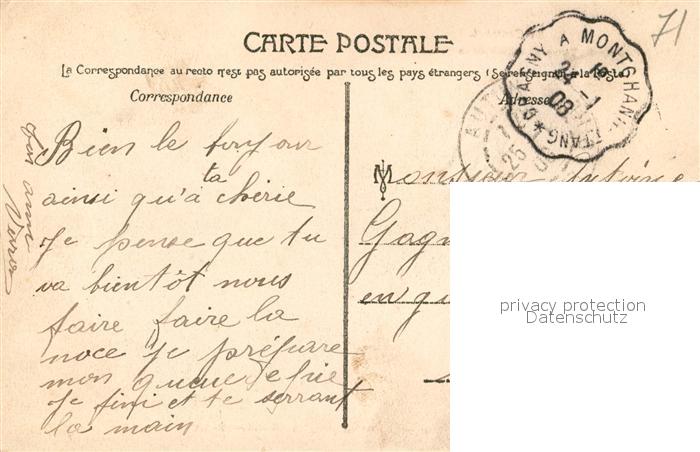 71
CARTE POSTALE
La Correspondance au recto n'est pas autorisée par tous les pays étrangers (Se renseigner à la Poste
Correspondance
Adresse
A MONTCHANIN
ETANG
24
08
AUT
25
Bien le bonjour
ainsi qu'à ta chérie
Je pense que tu
va bientôt nous
faire faire la
noce je prépare
mon queue
Je fini et te serrant
la main
Ton ami
Monsieur Antoine
Gagn
en
privacy protection
Datenschutz